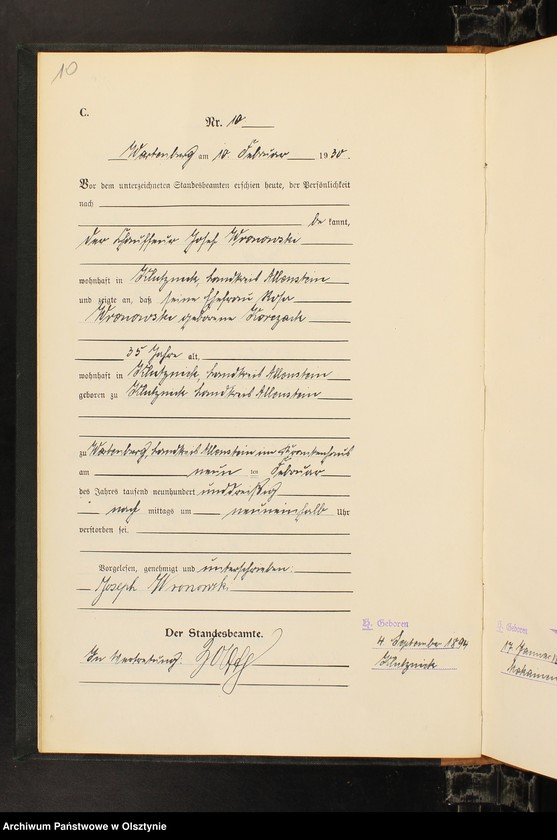 10
C.
Nr. 10
Wartenburg am 10. Februar 1930.
Vor dem unterzeichneten Standesbeamten erschien heute, der Persönlichkeit
nach
be kannt,
der Chauffeur Josef Wronowski
wohnhaft in Klutznick, Landkreis Allenstein
und zeigte an, daß seine Ehefrau Rosa
Wronowski geborene
35 Jahre alt,
wohnhaft in Klutznick, Landkreis Allenstein
geboren zu Klutznick Landkreis Allenstein
zu Wartenburg, Landkreis Allenstein im Krankenhaus
am neun ten Februar
des Jahres tausend neunhundert unddreißig
nach mittags um neuneinhalb Uhr
verstorben sei.
Vorgelesen, genehmigt und unterschrieben:
Joseph Wronowski
Der Standesbeamte.
In Vertretung:
H. Geboren
4. September 1894
Klutznick
Geboren
17. Januar
Archiwum Państwowe w Olsztynie